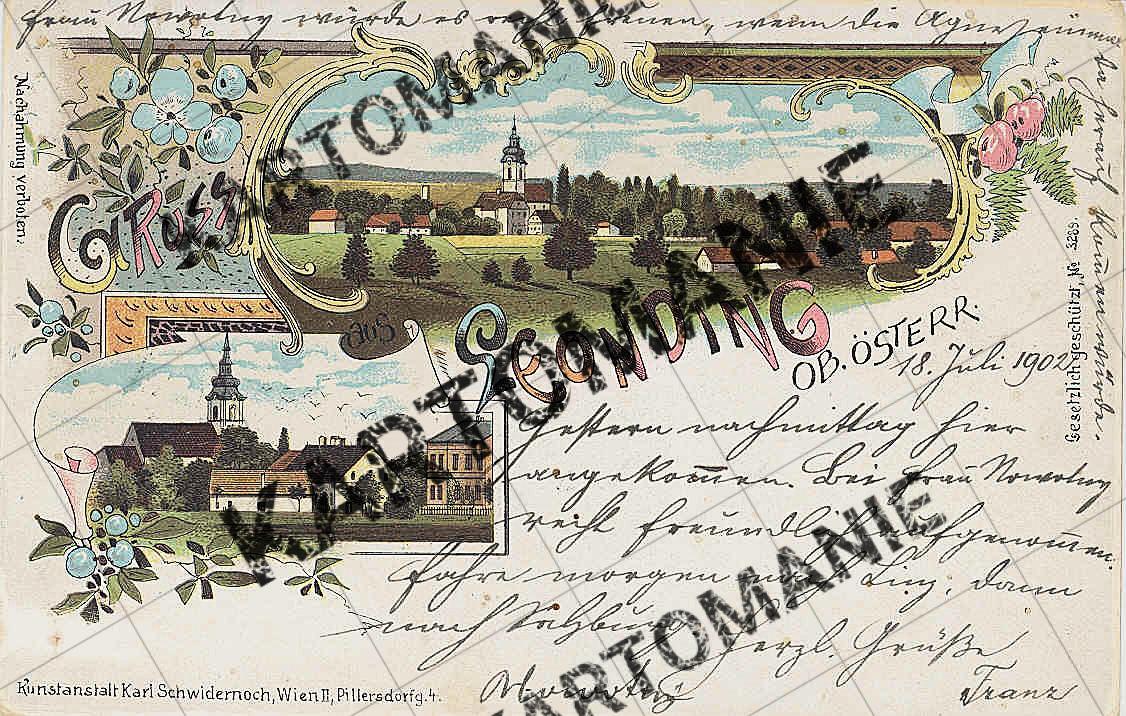 Frau Nowotny würde es recht freuen, wenn die Agnes einmal
da herauf kommen würde.
Nachahmung verboten.
GRUSS
AUS
LEONDING
OB. ÖSTERR.
Gesetzlich geschützt, № 3289.
18. Juli 1902
Gestern nachmittag hier
angekommen. Bei Frau Nowotny
recht freundlich aufgenommen.
fahre morgen nach Linz, dann
nach Salzburg
Herzl. Grüße
Nowotny
Franz
Kunstanstalt Karl Schwidernoch, Wien II, Pillersdorfg. 4.
KARTOMANIE
KARTOMANIE
KARTOMANIE
KARTOMANIE